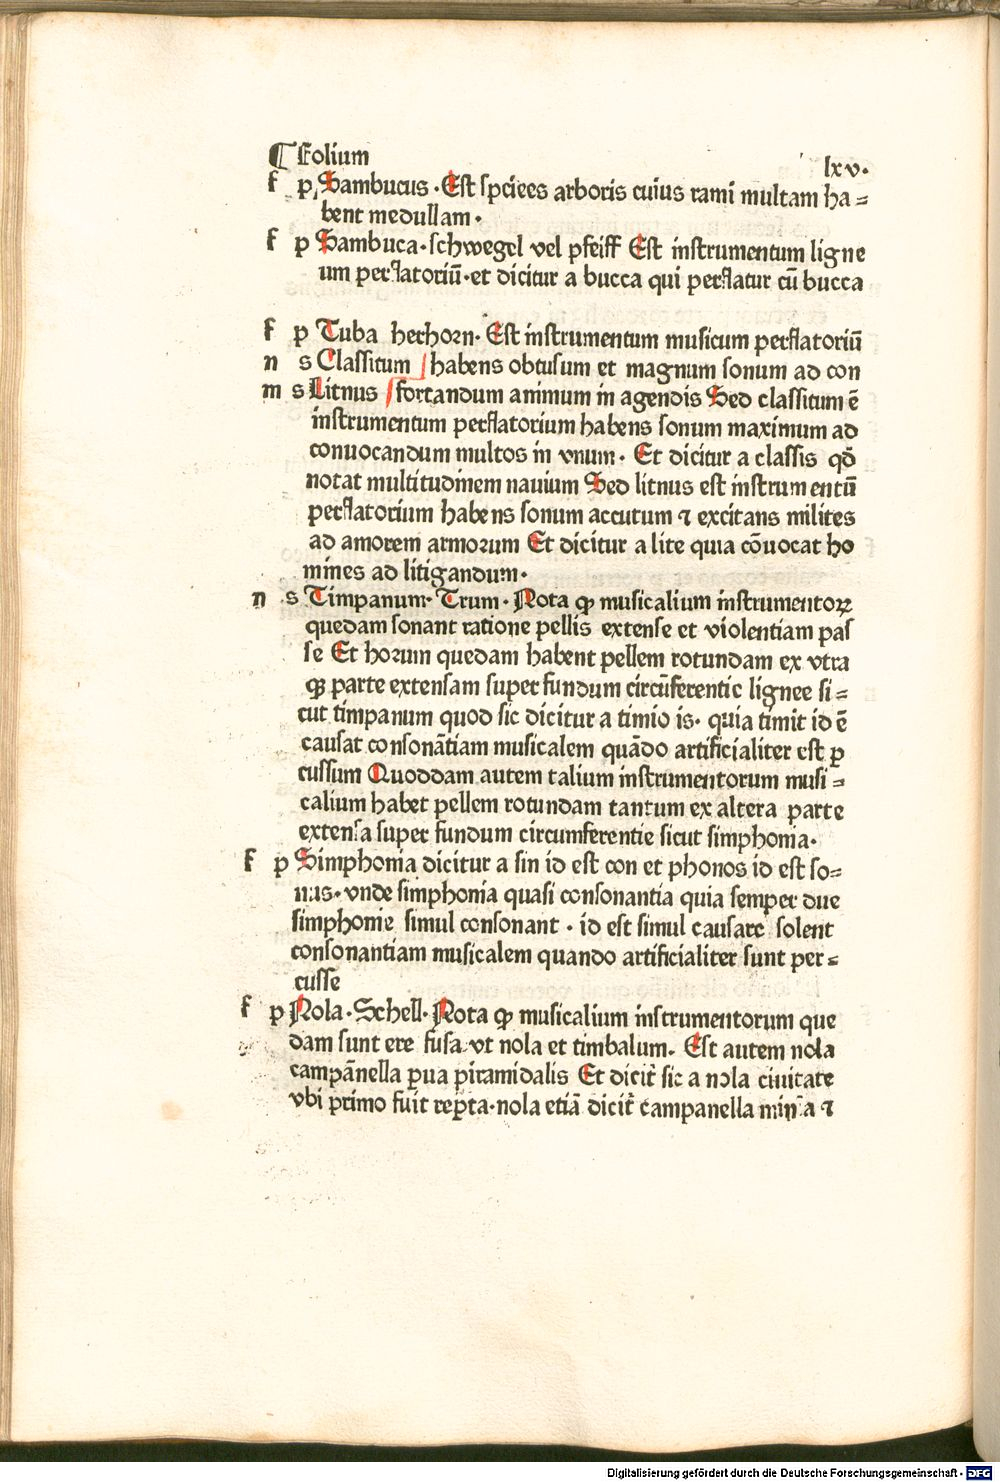 ¶ Folium lxv.
f p Sambucus . Est spciees arboris cuius rami multam ha=
bent medullam .
f p Sambuca . schwegel vel pfeiff Est instrumentum ligne
um perflatoriū . et dicitur a bucca qui perflatur cū bucca
f p Tuba herhorn . Est instrumentum musicum perflatoriū
n s Classitum habens obtusum et magnum sonum ad con
m s Litnus fortandum animum in agendis Sed classitum ē
instrumentum perflatorium habens sonum maximum ad
conuocandum multos in vnum . Et dicitur a classis qđ
notat multitudinem nauium Sed litnus est instrumentū
perflatorium habens sonum accutum ⁊ excitans milites
ad amorem armorum Et dicitur a lite quia cōuocat ho
mines ad litigandum .
n s Timpanum . Trum . Nota ꝙ musicalium instrumentoꝝ
quedam sonant ratione pellis extense et violentiam pas
se Et horum quedam habent pellem rotundam ex vtra
ꝙ parte extensam super fundum circūferentie lignee si=
cut timpanum quod sic dicitur a timio is . quia timit id ē
causat consonātiam musicalem quādo artificialiter est ꝑ
cussum Quoddam autem talium instrumentorum musi=
calium habet pellem rotundam tantum ex altera parte
extensa super fundum circumferentie sicut simphonia .
f p Simphonia dicitur a sin id est con et phonos id est so=
nus . vnde simphonia quasi consonantia quia semper due
simphonie simul consonant . id est simul causare solent
consonantiam musicalem quando artificialiter sunt per=
cusse
f p Nola . Schell . Nota ꝙ musicalium instrumentorum que
dam sunt ere fusa vt nola et timbalum . Est autem nola
campānella ꝑua piramidalis Et dicit̄ sic a nola ciuitate
vbi primo fuit reꝑta . nola etiā dicit̄ campanella min a ⁊
Digitalisierung gefördert durch die Deutsche Forschungsgemeinschaft - DFG